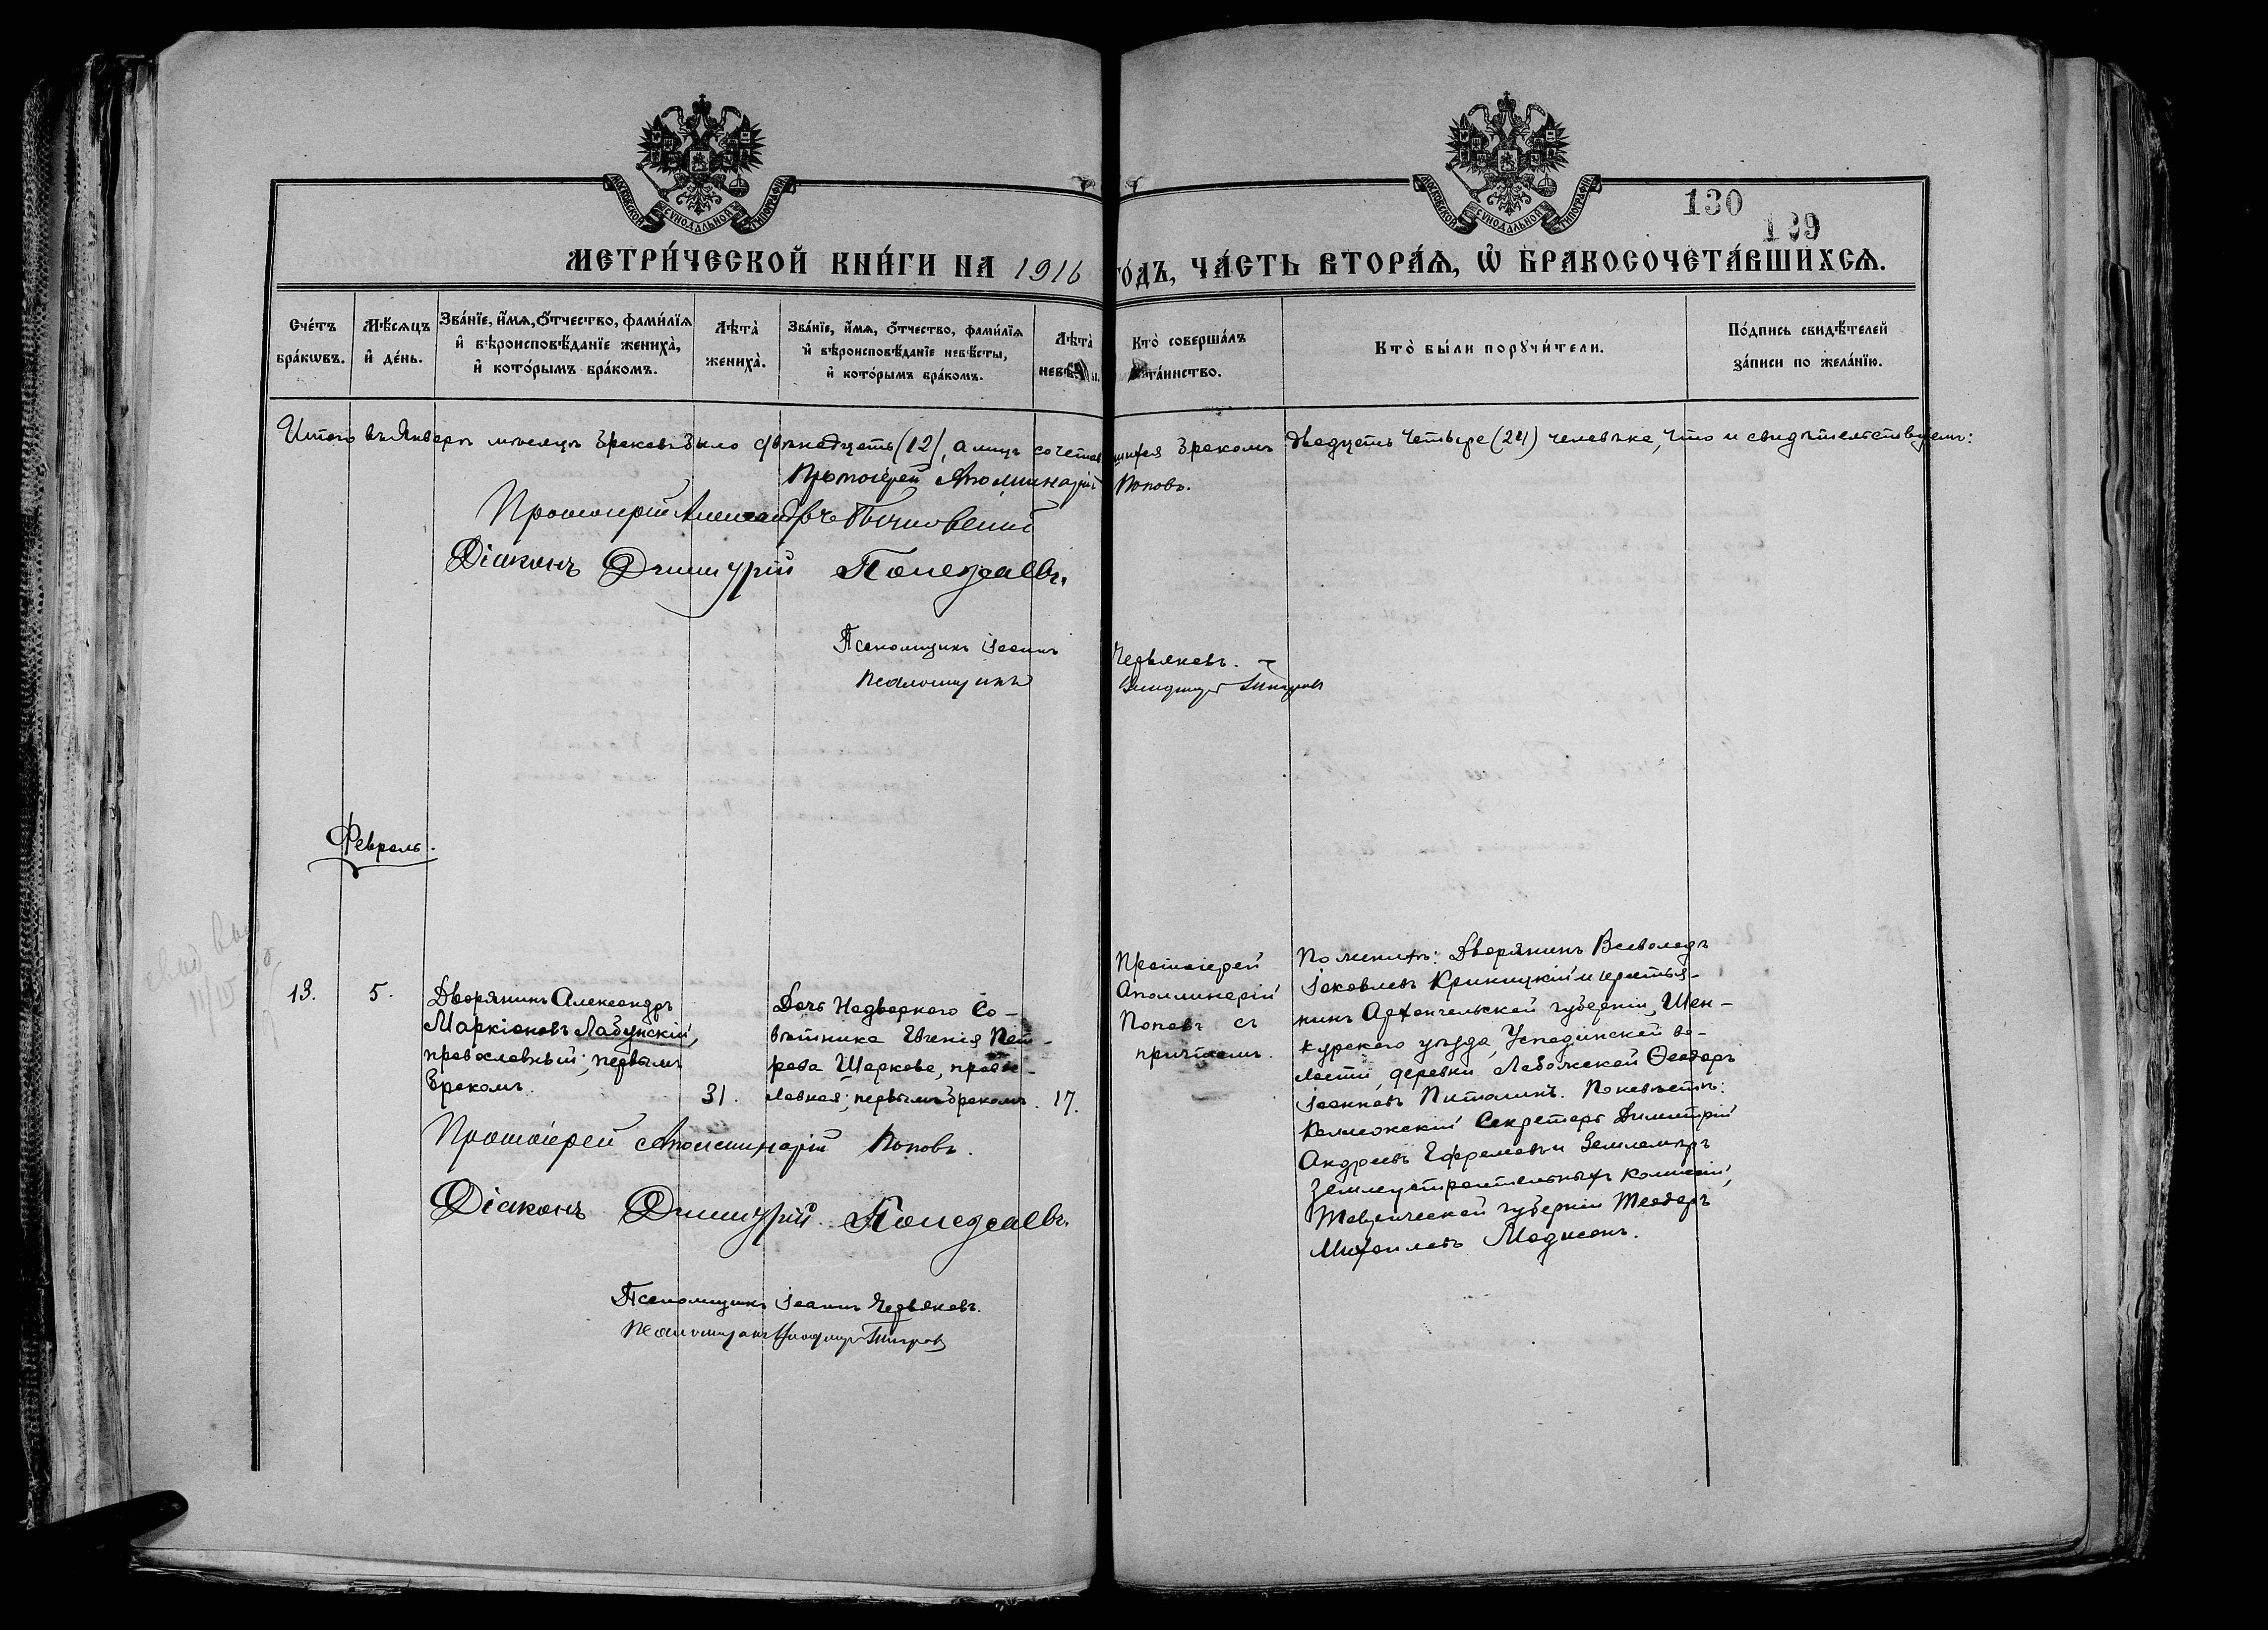 МОСКОВСКОЙ СУНОДАЛЬНОЙ ТИПОГРАФІИ
МОСКОВСКОЙ СУНОДАЛЬНОЙ ТИПОГРАФІИ
130
129
МЕТРИ́ЧЕСКОЙ КНИ́ГИ НА 1916 ГО́ДЪ, ЧА́СТЬ ВТОРА́Ѧ, Ѽ БРАКОСОЧЕТА́ВШИХСѦ.
Сче́тъ бра́кѡвъ.
Мѣ́сѧцъ и҆ де́нь.
Зва́нїе, и҆́мѧ, ѻ҆́тчество, фами́лїѧ
и҆ вѣроисповѣ́данїе жениха̀,
и҆ кото́рымъ бра́комъ.
Лѣта̀ жениха̀.
Зва́нїе, и҆́мѧ, ѻ҆́тчество, фами́лїѧ
и҆ вѣроисповѣ́данїе невѣ́сты,
и҆ кото́рымъ бра́комъ.
Лѣта̀ невѣ́сты.
Кто̀ соверша́лъ та́инство.
Кто̀ бы́ли порꙋчи́тели.
По́дпись свидѣ́телей
за́писи по жела́нїю.
Итого въ Январѣ мѣсяцѣ браковъ было двѣнадцать (12), а лицъ сочетавшихся бракомъ двадцать четыре (24) человѣка, что и свидѣтельствуемъ:
Протоіерей Аполлинарій Поповъ.
Протоіерей Александръ
Діаконъ Димитрій
Псаломщикъ Іоаннъ Червяковъ.
Псаломщикъ
Февраль.
13.
5.
Дворянинъ Александръ
Маркіановъ Лабунскій,
православный; первымъ
бракомъ.
31.
Дочь Надворнаго Со-
вѣтника Евгенія Пет-
рова Шаркова, право-
лавная; первымъ бракомъ.
17.
Протоіерей
Аполлинарій
Поповъ съ
причтомъ.
По женихѣ: Дворянинъ Всеволодъ
Іаковлевъ Криницкій и крестья-
нинъ Архангельской губерніи, Шен-
курскаго уѣзда, Устпадинской во-
лости, деревни Лабажской Ѳеодоръ
Іоанновъ Питолинъ. По невѣстѣ:
Коллежскій Секретарь Димитрій
Андреевъ Ефремовъ и Землемѣръ
Землеустроительныхъ комиссій,
Таврической губерніи Теодоръ
Михаиловъ Мадисонъ.
Протоіерей Аполлинарій Поповъ.
Діаконъ Димитрій
Псаломщикъ Іоаннъ Червяковъ.
Псаломщикъ